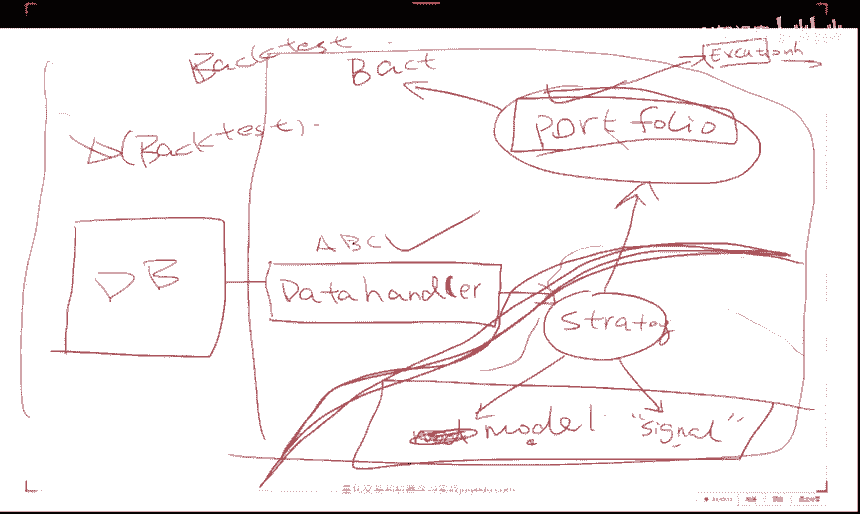 Backtest
Bact
Portfolio
(Backtest)
ABC
DB
Datahandler
Stratey
model "signal"